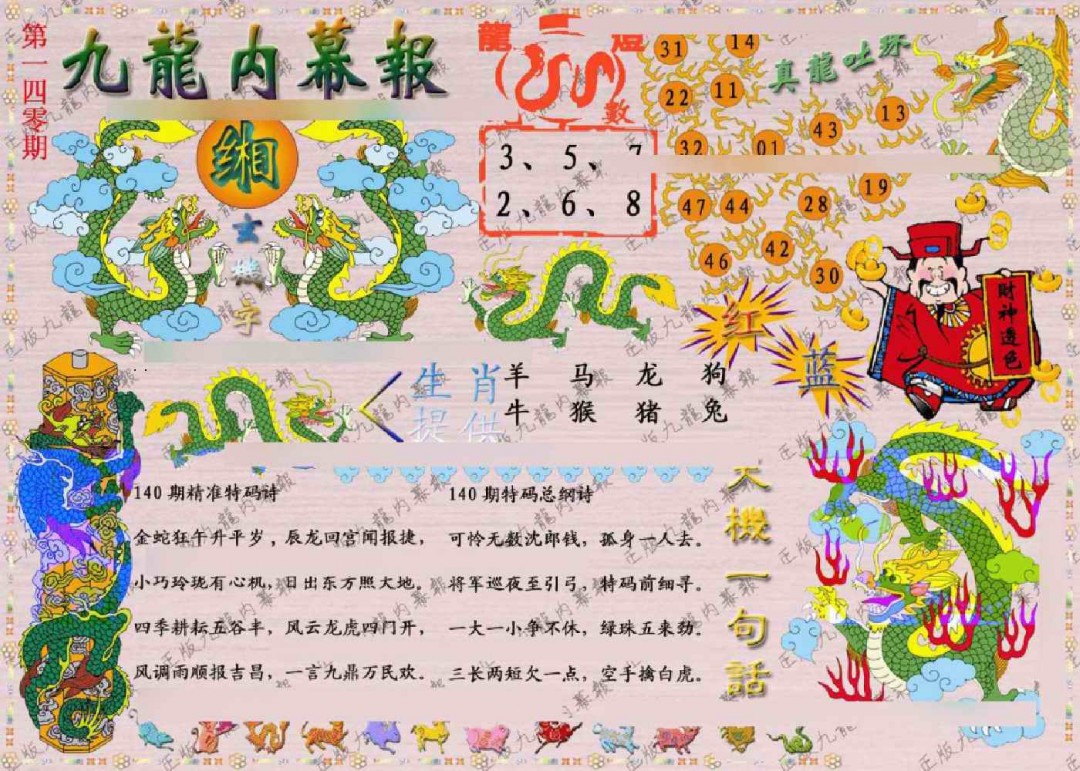 第一四零期
九龍内幕報
緗
玄
機
字
龍
數
3、5、7
2、6、8
真龍吐珠
31 14
22 11
43 13
32 01
47 44 28 19
46 42 30
红
蓝
财神透色
生肖
提供
羊 马 龙 狗
牛 猴 猪 兔
140期精准特码诗
金蛇狂午升平岁，辰龙回宫闻报捷，
小巧玲珑有心机，日出东方照大地。
四季耕耘五谷丰，风云龙虎四门开，
风调雨顺报吉昌，一言九鼎万民欢。
140期特码总纲诗
可怜无数沈郎钱，孤身一人去。
将军巡夜至引弓，特码前细寻。
一大一小争不休，绿珠五来劲。
三长两短欠一点，空手擒白虎。
天機一句話
正版九龍内幕報